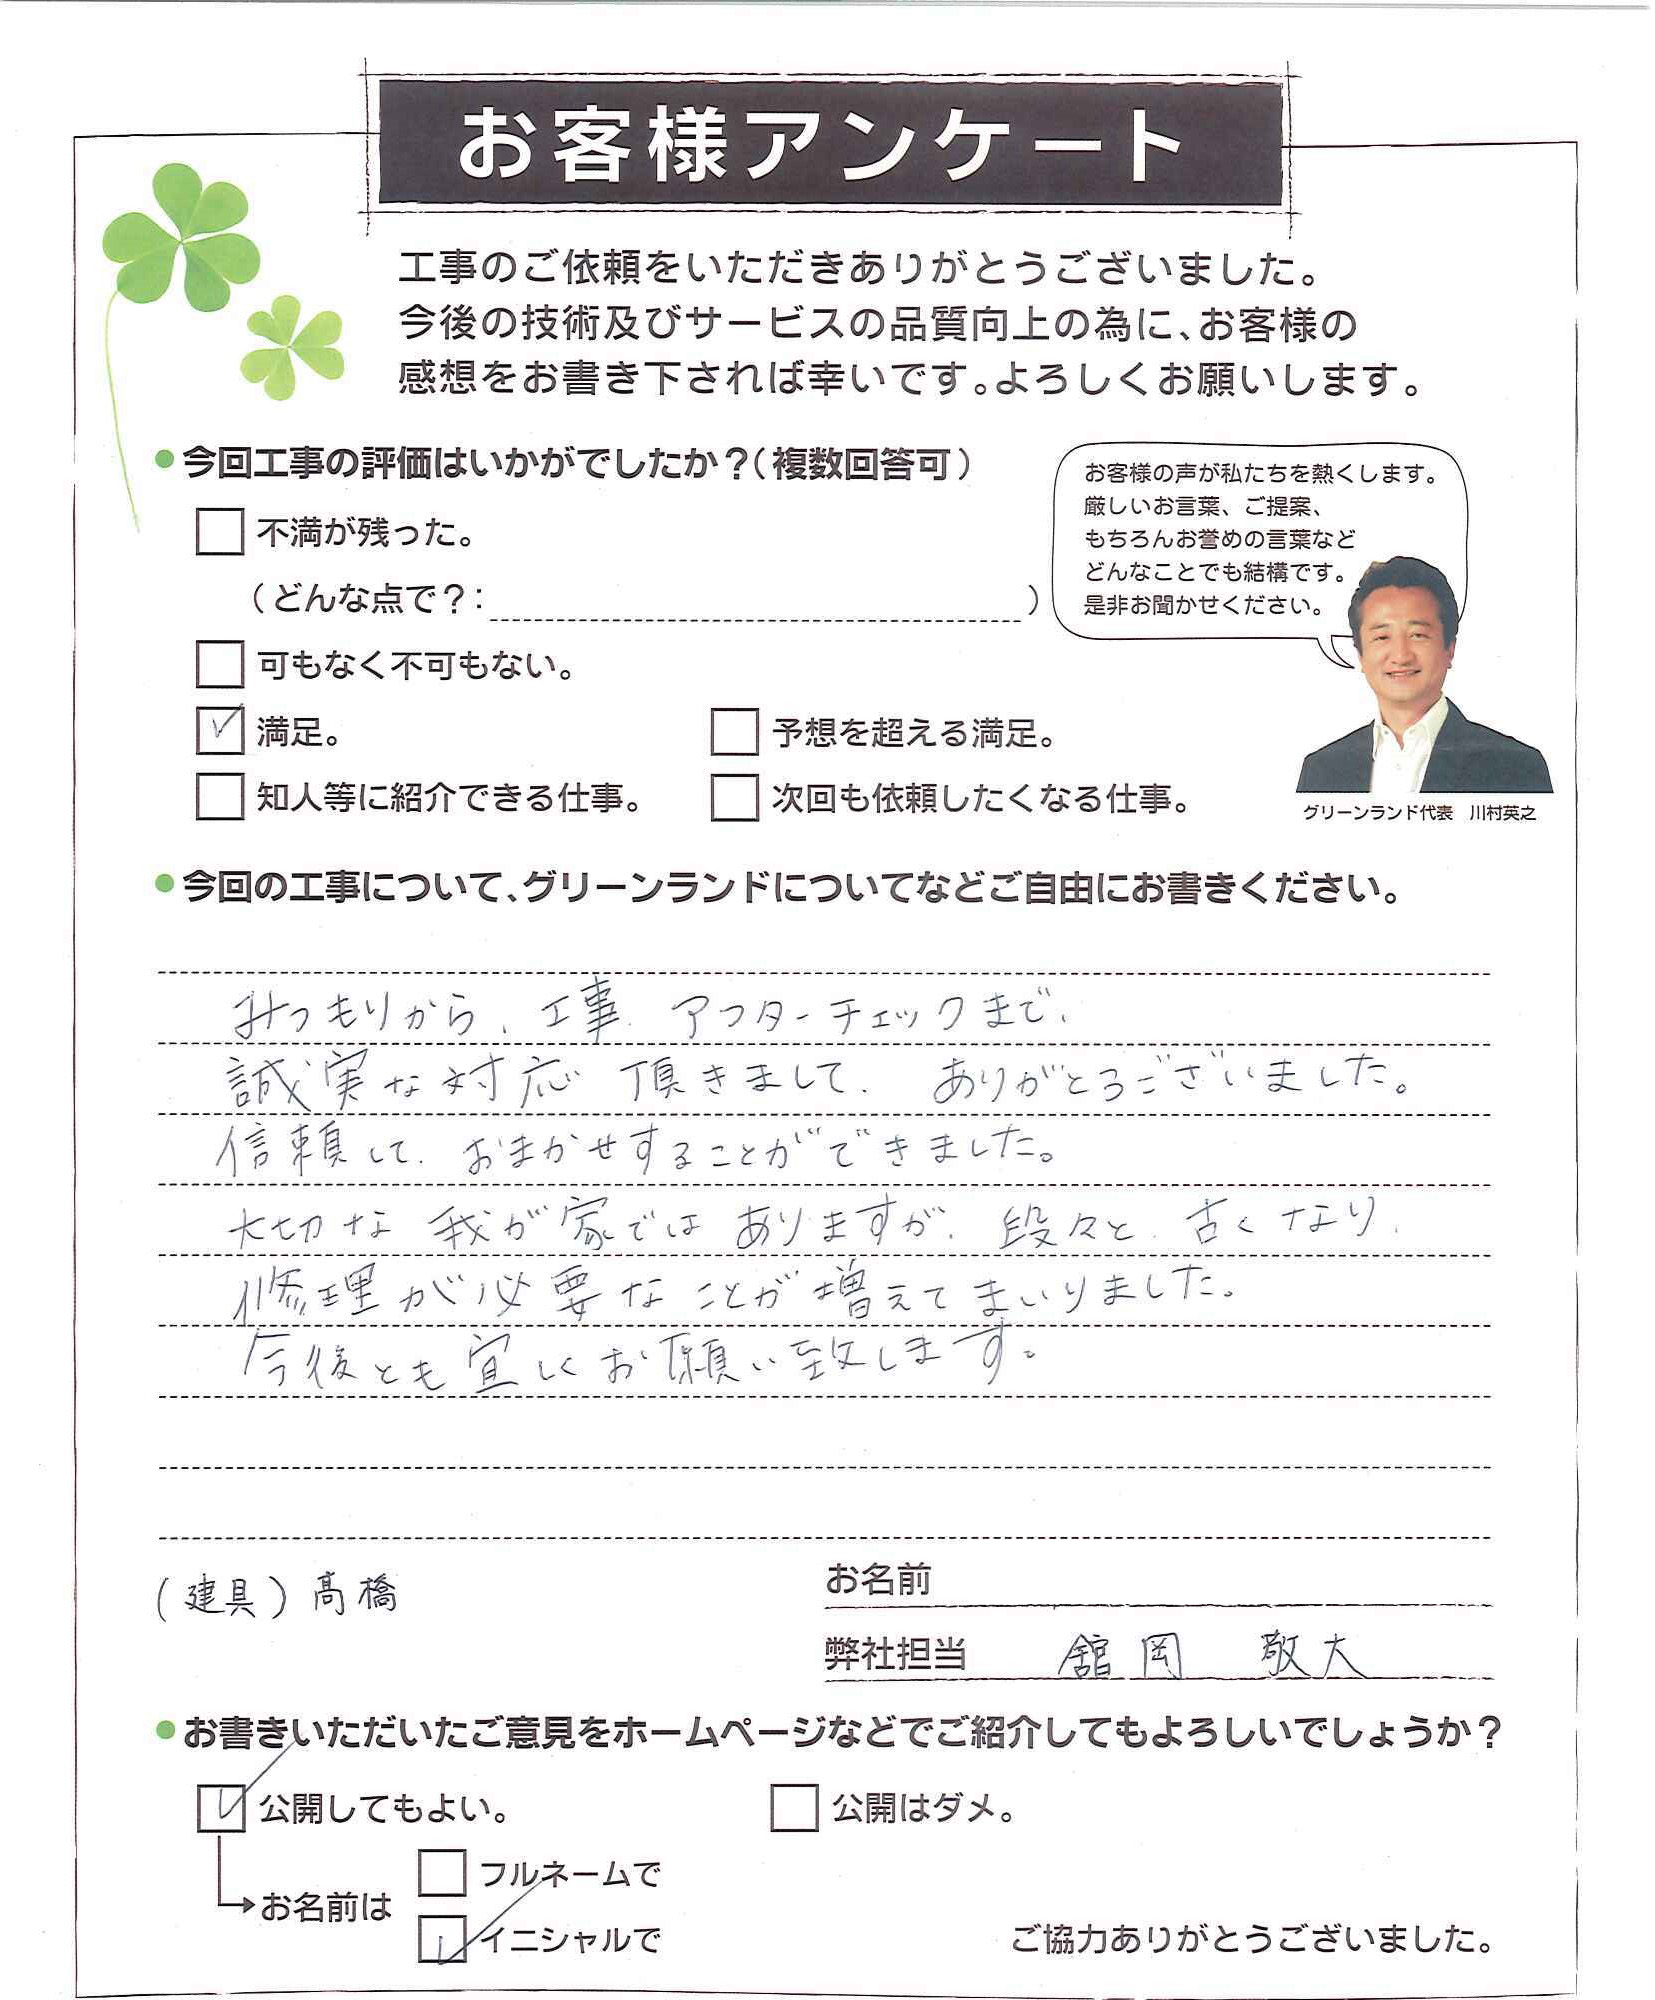 お客様アンケート
工事のご依頼をいただきありがとうございました。
今後の技術及びサービスの品質向上の為に、お客様の
感想をお書き下されば幸いです。よろしくお願いします。
●今回工事の評価はいかがでしたか？（複数回答可）
不満が残った。
（どんな点で？：　）
可もなく不可もない。
満足。
予想を超える満足。
知人等に紹介できる仕事。
次回も依頼したくなる仕事。
お客様の声が私たちを熱くします。
厳しいお言葉、ご提案、
もちろんお誉めの言葉など
どんなことでも結構です。
是非お聞かせください。
グリーンランド代表　川村英之
●今回の工事について、グリーンランドについてなどご自由にお書きください。
みつもりから、工事、アフターチェックまで、
誠実な対応 頂きまして、ありがとうございました。
信頼して、おまかせすることができました。
大切な 我が家では ありますが、段々と、古くなり、
修理が必要なことが増えてまいりました。
今後とも宜しくお願い致します。
（建具）髙橋
お名前
弊社担当　舘岡　敬大
●お書きいただいたご意見をホームページなどでご紹介してもよろしいでしょうか？
公開してもよい。
公開はダメ。
お名前は
フルネームで
イニシャルで
ご協力ありがとうございました。